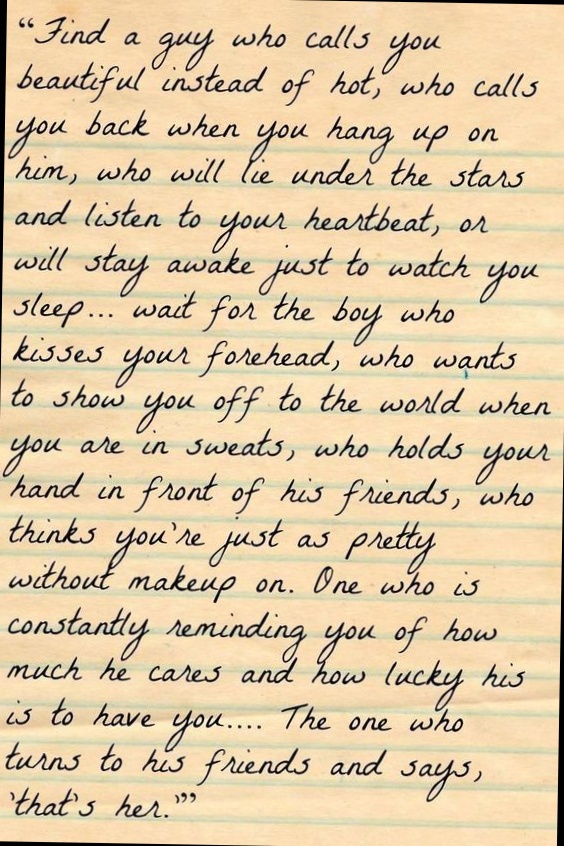 “Find a guy who calls you
beautiful instead of hot, who calls
you back when you hang up on
him, who will lie under the stars
and listen to your heartbeat, or
will stay awake just to watch you
sleep... wait for the boy who
kisses your forehead, who wants
to show you off to the world when
you are in sweats, who holds your
hand in front of his friends, who
thinks you're just as pretty
without makeup on. One who is
constantly reminding you of how
much he cares and how lucky his
is to have you.... The one who
turns to his friends and says,
'that's her.'”